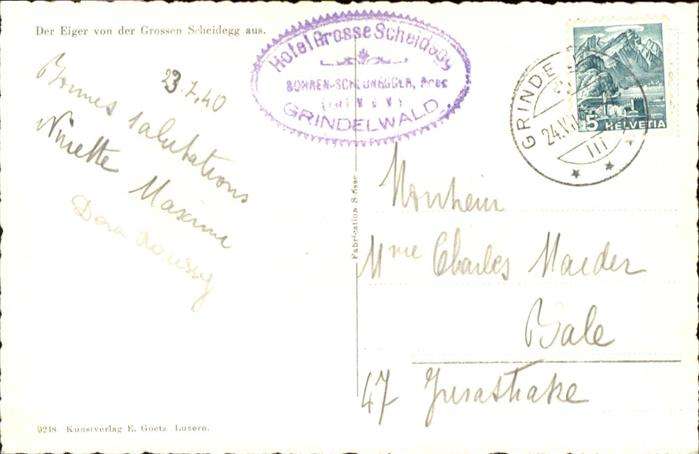 Der Eiger von der Grossen Scheidegg aus.
23.7.40
Bonnes salutations
Ninette Maxime
Dora
Hotel Grosse Scheidegg
BOHREN-SCHLUNEGGER, Bes.
GRINDELWALD
GRINDE
24.V
III
5 HELVETIA
Fabrication Suisse
Monheim
Mme Charles Maeder
Bale
47 Jurastrake
9248 Kunstverlag E. Goetz Luzern.